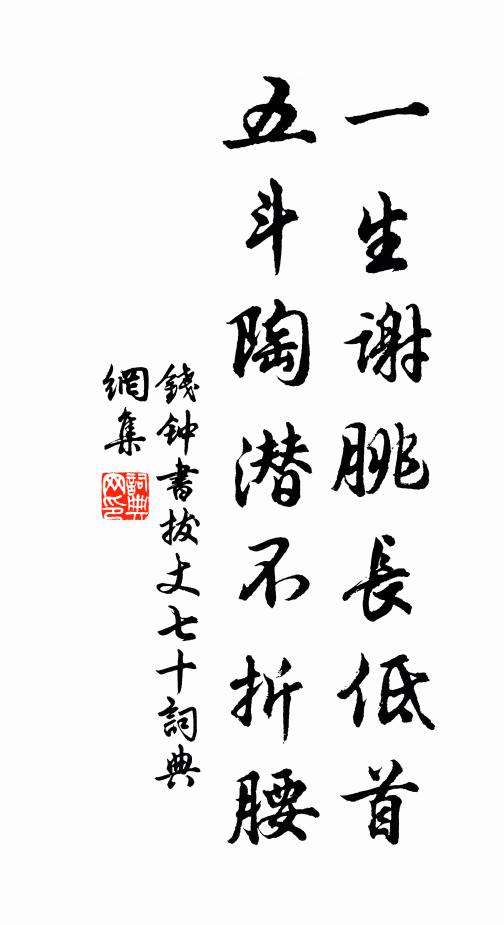 一生謝朓長低首
五斗陶潜不折腰
錢钟書拔丈七十詞典
網集
詞典
网印